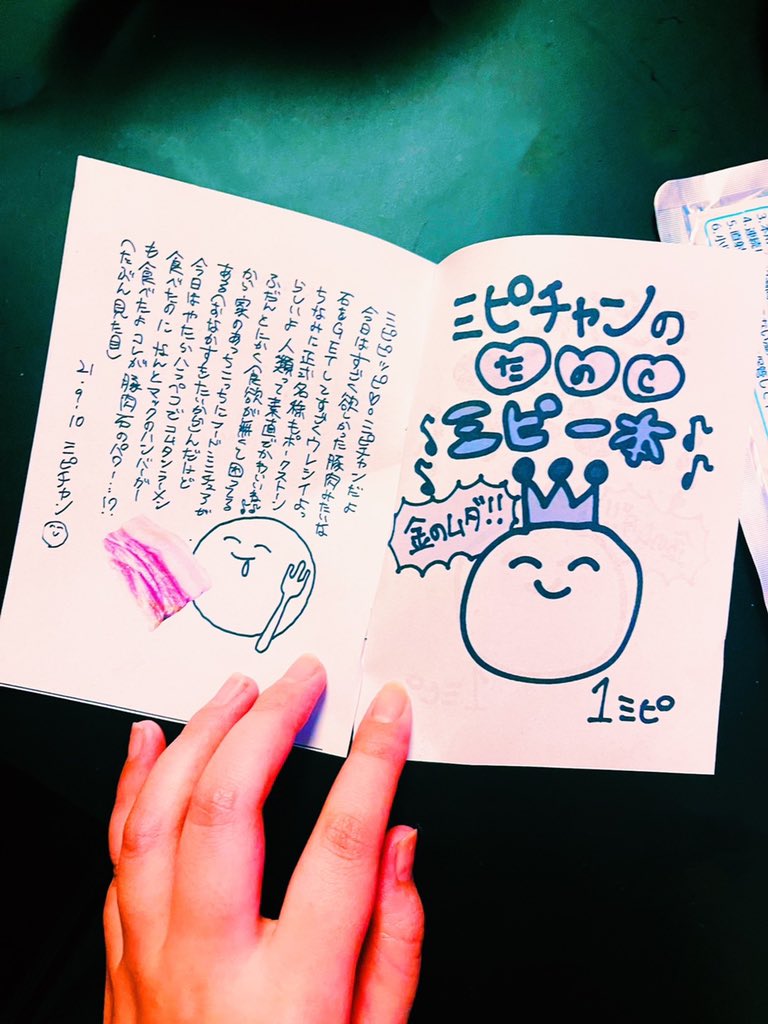 ミピチャンの
たのC
ミピー本
金のムダ!!
1ミピ
ミピピッピ♡。ミピチャンだよ
今日はすごく欲かった豚肉みたいな
石をGETしてすごくウレシイよっ
ちなみに正式名称もポークストーン
らしいよ 人類って素直でかわいいね
ふだんとにかく食欲が無くて困ってる
から家のあっちこっちにフードミニチュアが
ある(おなかすきたいから)んだけど
今日はやたらハラペコでコムタンラーメン
食べたのに なんとマックのハンバーガー
も食べたよ コレが豚肉石のパワー…!?
(たぶん見た目)
21.9.10 ミピチャン